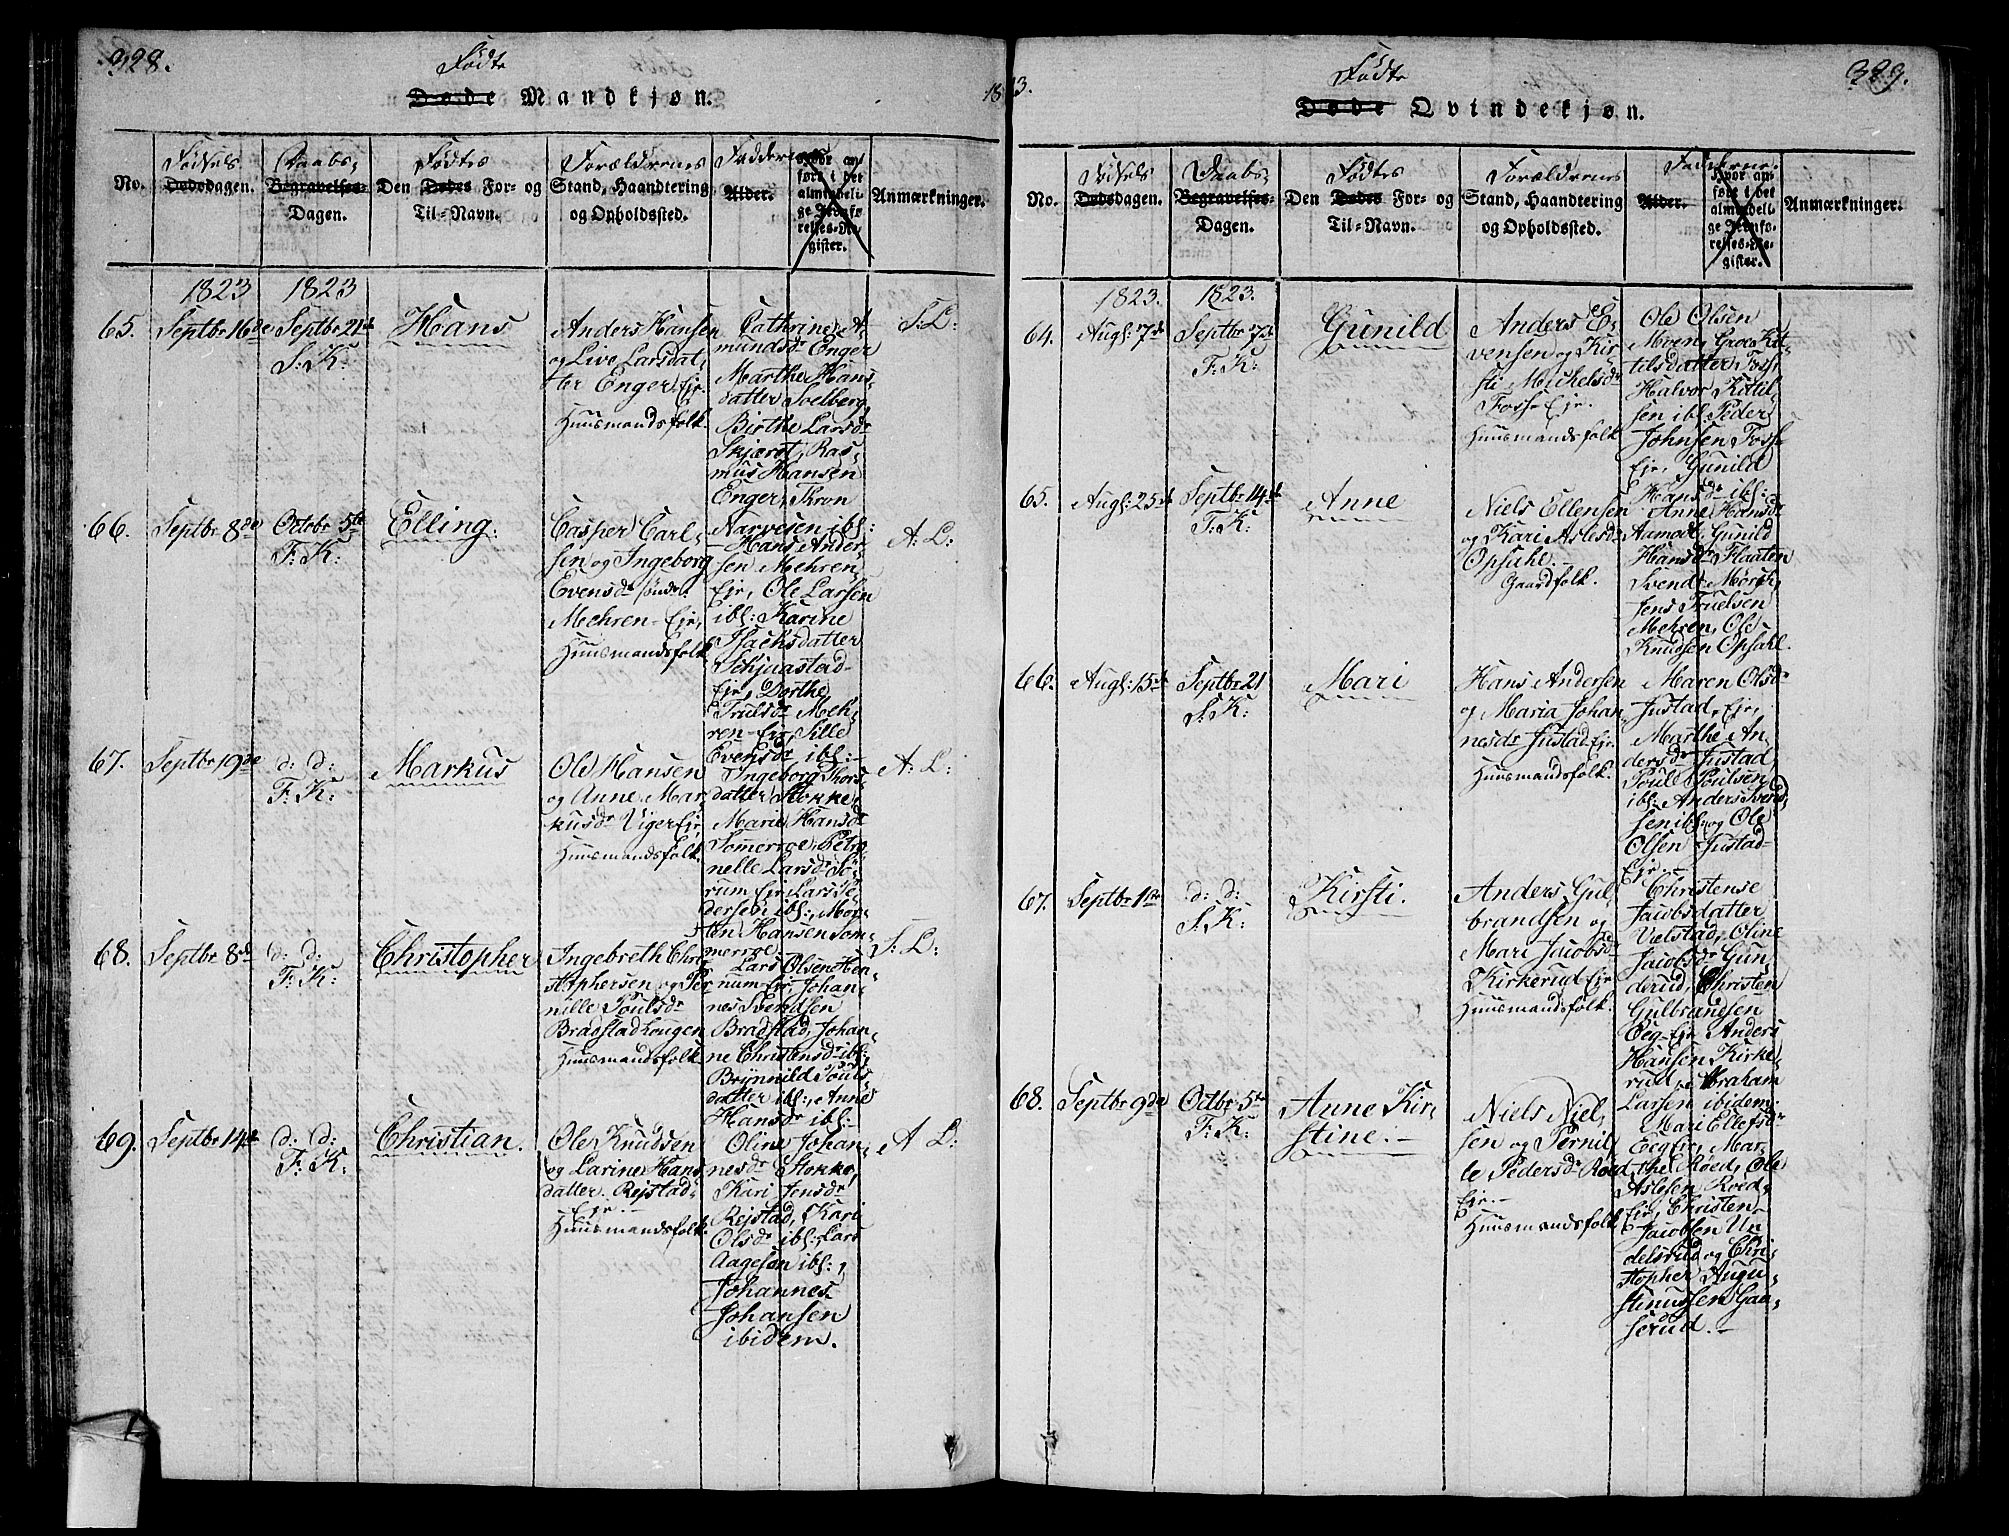 328.
Fødte
Døde Mandkjøn.
No.
Fødsels
Dødsdagen.
Daabs-
Begravelses-
Dagen.
Fødtes
Den Dødes For- og
Til-Navn.
Forældrernes
Stand, Haandtering
og Opholdssted.
Fadderne
Alder.
Hvor an-
føre i det
almindeli-
ge Jevnfø-
relses-Re-
gister.
Anmærkninger.
1823 1823
65. Septbr 16de Septbr 21de
S: K:
Hans
Anders Hansen
og Live Larsdat-
ter Enger Eje.
Huusmandsfolk.
Cathrine A-
mundsdr Enger
Marthe Hans-
datter Soelberg
Birthe Larsdr
Skjærst, Ras-
mus Hansen
Enger, Thron
Narvesen ibl:
S: L:
66. Septbr 8de Octobr 5te
F: K:
Elling.
Casper Carl-
sen og Ingeborg
Evensdr søndr
Mehren-Eje,
Huusmandsfolk
Hans Ander-
sen Mehren-
Eje, Ole Larsen
ibl: Karine
Isachsdatter
Skjnastad-
Eje, Dorthe
Trulsdr Meh-
ren-Eje, Sille
Evensdr ibl:
A: L:
67. Septbr 19de d: d:
F: K:
Markus
Ole Hansen
og Anne Mar-
kusdr Viger Eje,
Huusmandsfolk
Ingeborg Thors-
datter Stokke,
Marie Hansdr
Somerroe, Petro-
nelle Larsdr Sø-
rum Eje, Lars
dersen ibl:, Mor-
ten Hansen Som-
merroe
A: L:
68. Septbr 8de d: d:
F: K:
Christopher
Ingebreth Chri-
stophersen og Per-
nille Poulsdr
Bradstad Lougen
Huusmandsfolk
Lars Olsen Hea-
num Eje, Johan-
nes Svendsen
Bradstad, Johan-
ne Christensdr ibl:,
Brynnild Pouls-
datter ibl:, Anne
Hansdr ibl:
S: L:
69. Septbr 14de d: d:
F: K:
Christian.
Ole Knudsen
og Larine Hans-
datter. Rejstad-
Eje.
Huusmandsfolk.
Oline Johan-
nesdr Stokke,
Kari Jensdr
Rejstad, Kari
Olsdr ibl:, Lars
Aagesøn ibl:,
Johannes
Johansen
ibidem.
A L:
1823.
329.
Fødte
Døde Qvindekjøn.
No.
Fødsels
Dødsdagen.
Daabs-
Begravelses-
Dagen.
Fødtes
Den Dødes For- og
Til-Navn.
Forældrernes
Stand, Haandtering
og Opholdssted.
Fadderne.
Alder.
Hvor an-
føre i det
almindeli-
ge Jevnfø-
relses-Re-
gister.
Anmærkninger.
1823. 1823.
64. Augs: 7de Septbr 7de
F: K:
Gunild
Anders E-
vensen og Kir-
sti Mickelsdr
Foss-Eje.
Huusmandsfolk
Ole Olsen
Moen, Groe Kit-
tilsdatter Foss,
Halvor Kittil-
sen ibl: Peder
Johnsen Foss-
Eje, Gunild
Hansdr ibl:
65. Augs: 25de Septbr 14de
F: K:
Anne
Niels Ellensen
og Kari Aslesdr
Opsahl.
Gaardfolk.
Anne Hansdr
Aamodt, Gunild
Hansdr Flaaten
Svend Mørch,
Jens Truelsen
Mehren, Ole
Knudsen Opsahl.
66. Augs: 15de Septbr 21
S: K:
Mari
Hans Andersen
og Maria Johan-
nesdr Justad Eje.
Huusmandsfolk.
Maren Olsdr
Justad, Eje,
Marthe An-
dersdr Justad
Poul Poulsen
ibl: Anders Svend-
sen ibl: og Ole
Olsen Justad-
Eje.
67. Septbr 1ste d: d:
S: K:
Kirsti.
Anders Gul-
brandsen og
Mari Jacobsdr
Kirkerud Eje
Huusmandsfolk.
Christense
Jacobsdatter
Vælstad, Oline
Jacobsdr Gun-
derud, Christen
Gulbrandsen
Eeg-Eje Anders
Hansen Kirke-
rud, Abraham
Larsen ibidem:
68. Septbr 9de Octbr 5te
F: K:
Anne Kir-
stine.
Niels Niel-
sen og Pernil-
le Pedersdr Roed
Eje.
Huusmandsfolk
Mari Ellefsdr
Eeg Eje, Mar-
the Røed, Ole
Aslesen Roed-
Eje, Christen
Jacobsen Un-
delsrud og Chri-
stopher Augu-
stinussen Gaa-
serud.